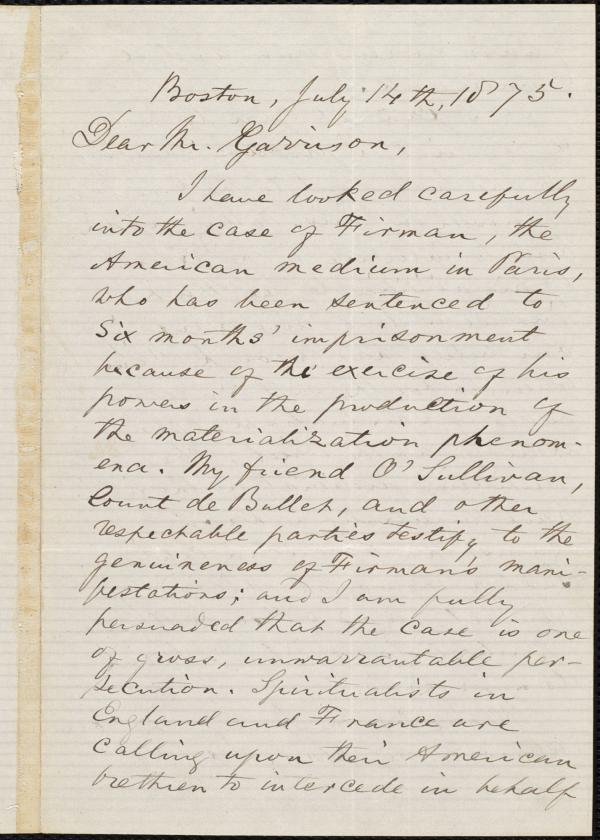 Boston, July 14th, 1875.
Dear Mr. Garrison,
I have looked carefully
into the case of Firman, the
American medium in Paris,
who has been sentenced to
six months' imprisonment
because of the exercise of his
powers in the production of
the materialization phenom-
ena. My friend O'Sullivan,
Count de Bullet, and other
respectable parties testify to the
genuineness of Firman's mani-
festations; and I am fully
persuaded that the case is one
of gross, unwarrantable per-
secution. Spiritualists in
England and France are
calling upon their American
brethren to intercede in behalf